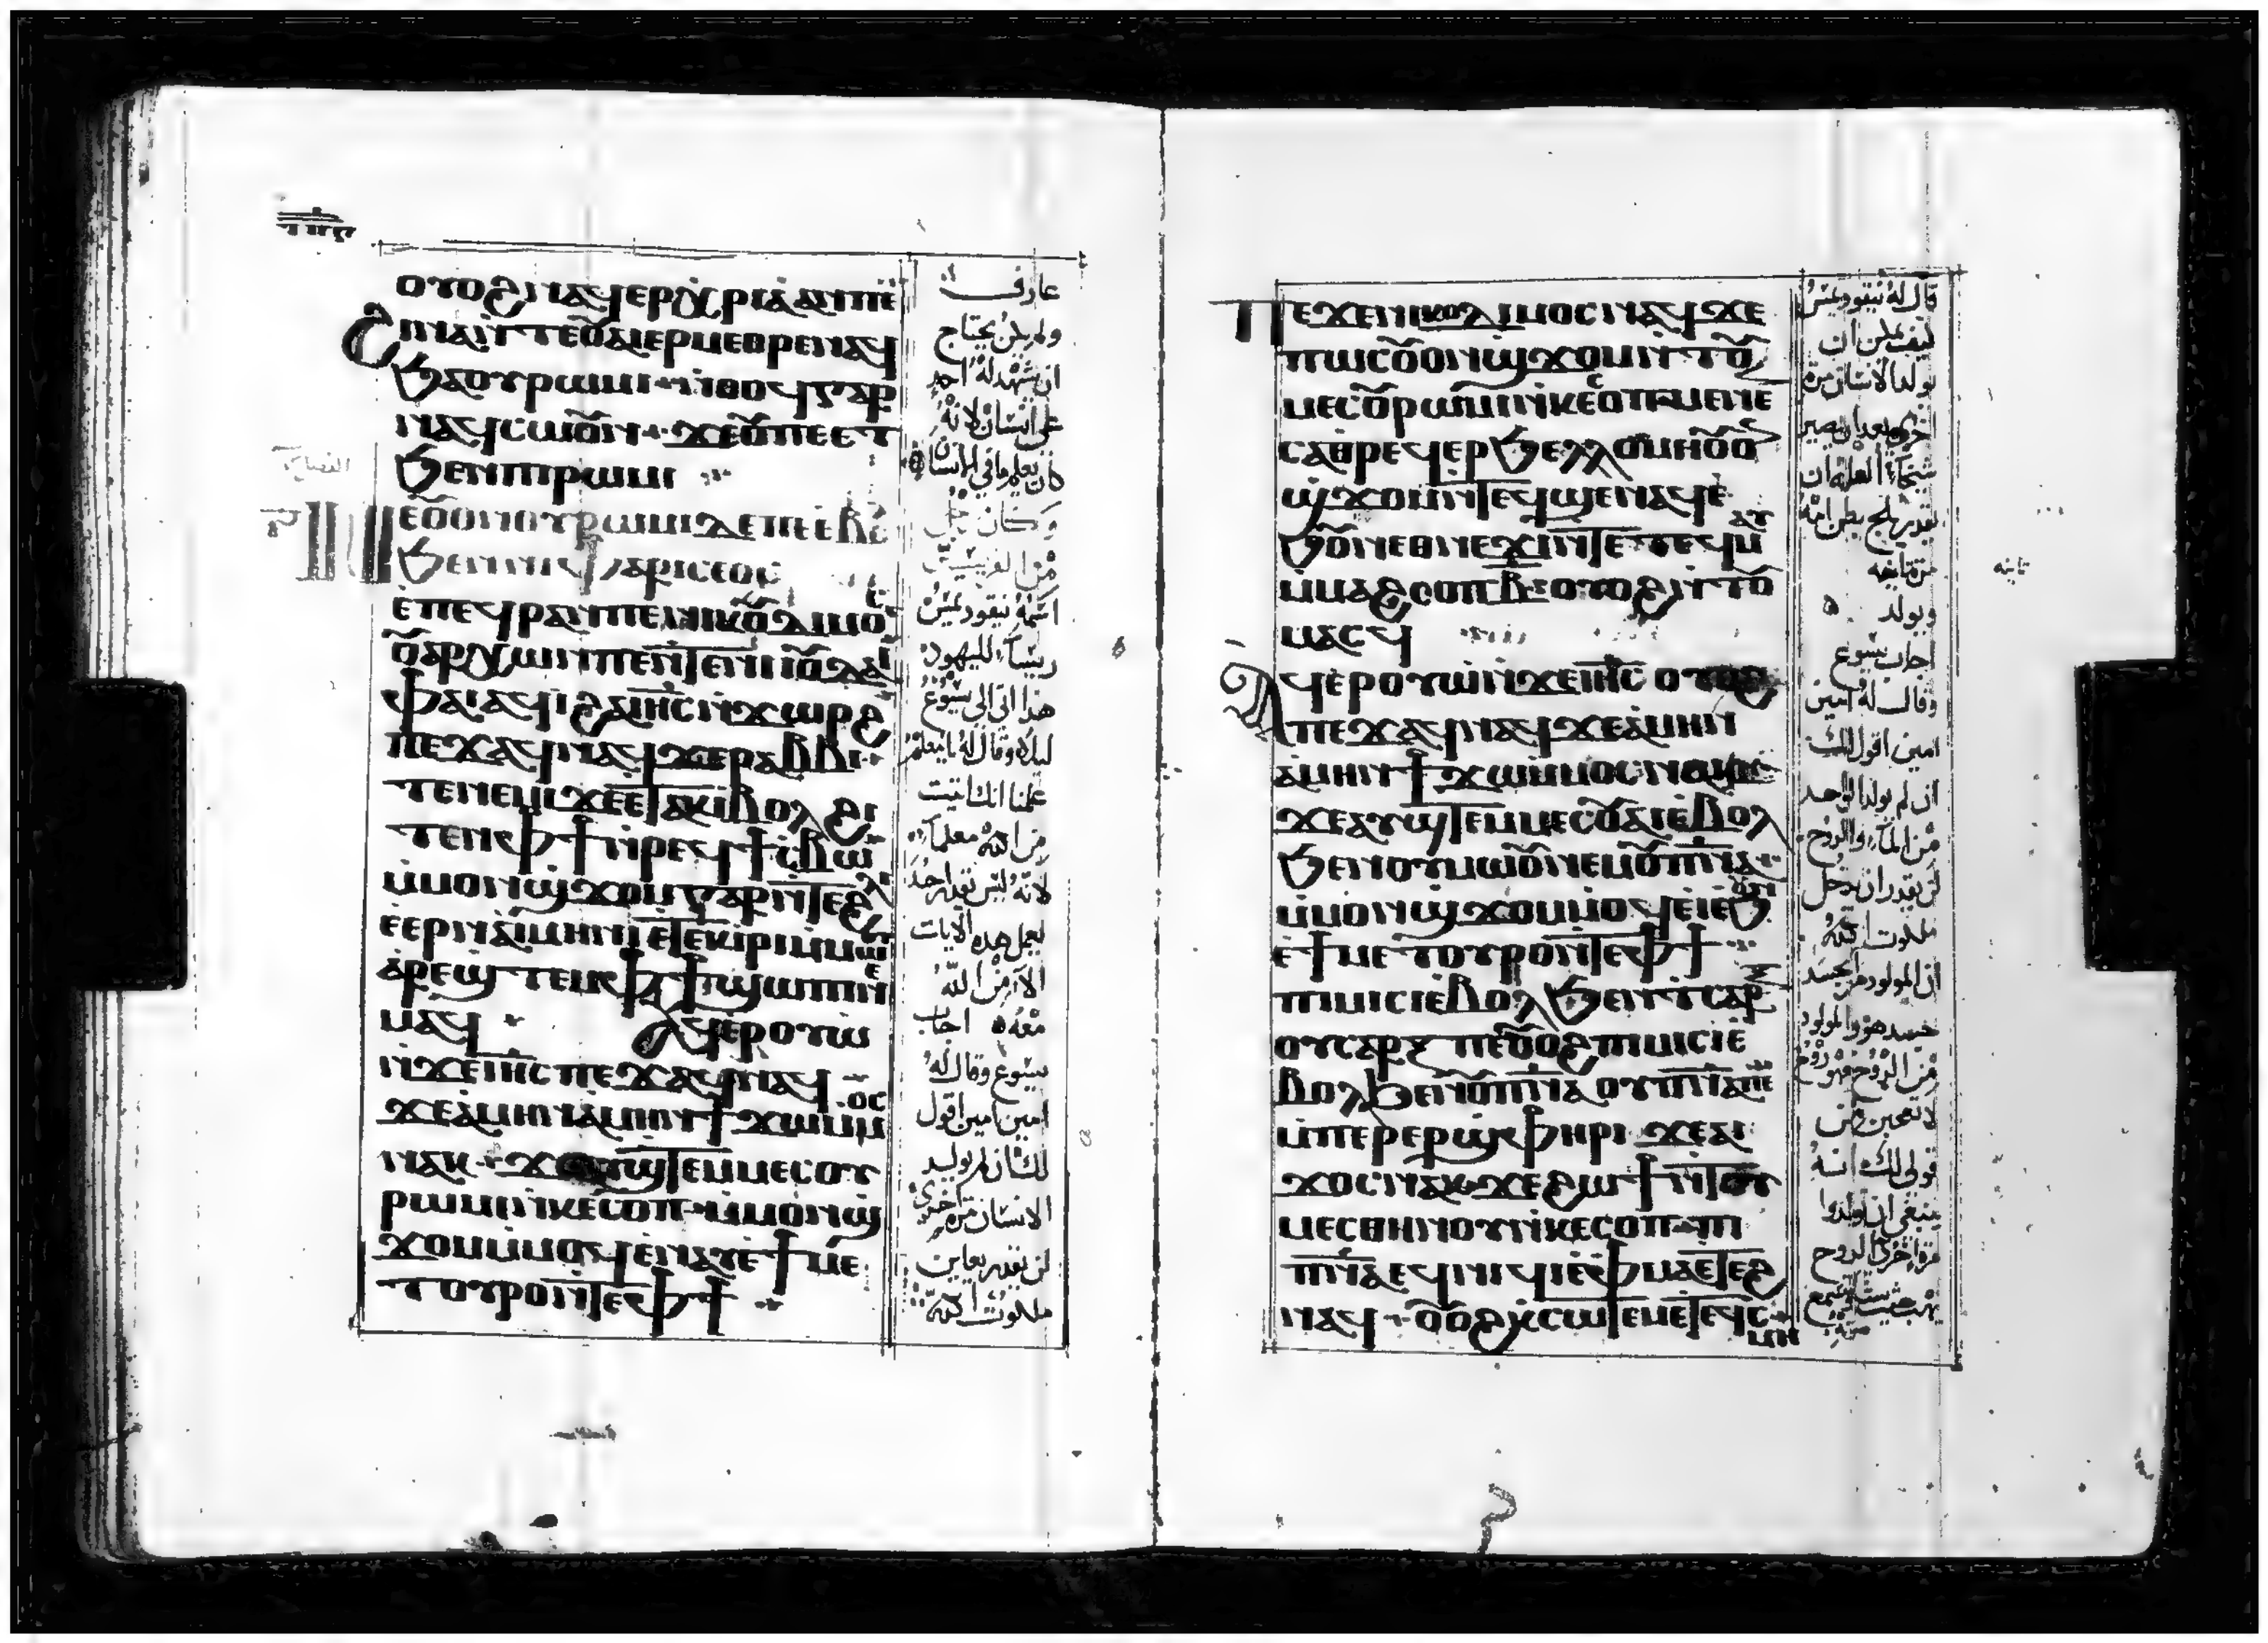 ⲟⲩⲟϩ ⲛⲁϥⲉⲣⲭⲣⲓⲁ ⲁⲛ ⲡⲉ
ϩⲓⲛⲁ ⲛⲧⲉⲟⲩⲁⲓ ⲉⲣⲙⲉⲑⲣⲉ ⲛⲁϥ
ϧⲁ ⲟⲩⲣⲱⲙⲓ ⲛⲑⲟϥ ⲅⲁⲣ
ⲛⲁϥⲥⲱⲟⲩⲛ ϫⲉ ⲟⲩ ⲡⲉⲉⲧ
ϧⲉⲛ ⲡⲓⲣⲱⲙⲓ
ⲛⲉ ⲟⲩⲟⲛ ⲟⲩⲣⲱⲙⲓ ⲇⲉ ⲡⲉ ⲉⲃⲟⲗ
ϧⲉⲛ ⲛⲓⲫⲁⲣⲓⲥⲉⲟⲥ
ⲉⲡⲉϥⲣⲁⲛ ⲡⲉ ⲛⲓⲕⲟⲇⲓⲙⲟⲥ
ⲟⲩⲁⲣⲭⲱⲛ ⲡⲉ ⲛⲧⲉ ⲛⲓⲓⲟⲩⲇⲁⲓ
ⲫⲁⲓ ⲁϥⲓ ϩⲁ ⲓⲏⲥ ⲛϫⲱⲣϩ
ⲡⲉϫⲁϥ ⲛⲁϥ ϫⲉ ⲣⲁⲃⲃⲓ
ⲧⲉⲛⲉⲙⲓ ϫⲉ ⲉⲧⲁⲕⲓ ⲉⲃⲟⲗ ϩⲓ
ⲧⲉⲛ ⲫϯ ⲛⲣⲉϥϯⲥⲃⲱ
ⲙⲙⲟⲛ ⲱϫⲟⲙ ⲅⲁⲣ ⲛⲧⲉ ϩⲗⲓ
ⲉⲉⲣ ⲛⲁⲓⲙⲏⲓⲛⲓ ⲉⲧⲉⲕⲓⲣⲓ ⲙⲙⲱⲟⲩ
ⲁⲣⲉϣⲧⲉⲙ ⲫϯ ϣⲱⲡⲓ ⲛⲉ
ⲙⲁϥ ⲁϥⲉⲣⲟⲩⲱ
ⲛϫⲉ ⲓⲏⲥ ⲡⲉϫⲁϥ ⲛⲁϥ
ϫⲉ ⲁⲙⲏⲛ ⲁⲙⲏⲛ ϯϫⲱ ⲙⲙⲟⲥ
ⲛⲁⲕ ϫⲉ ⲁⲩϣⲧⲉⲙⲙⲉⲥ ⲟⲩ
ⲣⲱⲙⲓ ⲛⲕⲉⲥⲟⲡ ⲙⲙⲟⲛ ϣ
ϫⲟⲙ ⲙⲙⲟϥ ⲉⲛⲁⲩ ⲉϯⲙⲉ
ⲧⲟⲩⲣⲟ ⲛⲧⲉ ⲫϯ
عارف
ولم يكن يحتاج
ان يشهد له احد
على انسان لانه
كان يعلم ما في الانسان
وكان رجل
من الفريسيين
اسمه نيقوديمس
رييسا لليهود
هذا اتى الى يسوع
ليلا وقال له يا معلم
علمنا انك اتيت
من الله معلما
لانه ليس يقدر احد
يعمل هذه الايات
الا من الله
معه اجاب
يسوع وقال له
امين امين اقول
لك ان لم يولد
الانسان مرة اخرى
لن يقدر يعاين
ملكوت الله
ⲡⲉϫⲉ ⲛⲓⲕⲟⲇⲓⲙⲟⲥ ⲛⲁϥ ϫⲉ
ⲡⲱⲥ ⲟⲩⲟⲛ ϣϫⲟⲙ ⲛⲧⲟⲩ
ⲙⲉⲥ ⲟⲩⲣⲱⲙⲓ ⲛⲕⲉⲥⲟⲡ ⲙⲉⲛⲉⲛ
ⲥⲁ ⲑⲣⲉϥⲉⲣϧⲉⲗⲗⲟ ⲙⲏ ⲟⲩⲟⲛ
ϣϫⲟⲙ ⲛⲧⲉϥϣⲉⲛⲁϥ ⲉ
ϧⲟⲩⲛ ⲉⲑⲛⲉϫⲓ ⲛⲧⲉ ⲧⲉϥⲙⲁⲩ
ⲙⲙⲁϩⲥⲟⲡ ⲃ ⲟⲩⲟϩ ⲛⲧⲟⲩ
ⲙⲁⲥϥ
ⲁϥⲉⲣⲟⲩⲱ ⲛϫⲉ ⲓⲏⲥ ⲟⲩⲟϩ
ⲡⲉϫⲁϥ ⲛⲁϥ ϫⲉ ⲁⲙⲏⲛ
ⲁⲙⲏⲛ ϯϫⲱ ⲙⲙⲟⲥ ⲛⲁⲕ
ϫⲉ ⲁⲩϣⲧⲉⲙⲙⲉⲥ ⲟⲩⲁⲓ ⲉⲃⲟⲗ
ϧⲉⲛ ⲟⲩⲙⲱⲟⲩ ⲛⲉⲙ ⲟⲩⲡⲛⲁ
ⲙⲙⲟⲛ ϣϫⲟⲙ ⲙⲙⲟϥ ⲉⲓ ⲉϧⲟⲩⲛ
ⲉϯⲙⲉⲧⲟⲩⲣⲟ ⲛⲧⲉ ⲫϯ
ⲡⲓⲙⲓⲥⲓ ⲉⲃⲟⲗ ϧⲉⲛ ⲧⲥⲁⲣⲝ
ⲟⲩⲥⲁⲣⲝ ⲡⲉ ⲟⲩⲟϩ ⲡⲓⲙⲓⲥⲓ ⲉ
ⲃⲟⲗ ϧⲉⲛ ⲡⲓⲡⲛⲁ ⲟⲩⲡⲛⲁ ⲡⲉ
ⲙⲡⲉⲣⲉⲣϣⲫⲏⲣⲓ ϫⲉ ⲁⲓ
ϫⲟⲥ ⲛⲁⲕ ϫⲉ ϩⲱϯ ⲛⲧⲟⲩ
ⲙⲉⲥ ⲑⲏⲛⲟⲩ ⲛⲕⲉⲥⲟⲡ ⲡⲓ
ⲡⲛⲁ ⲉϥⲛⲓϥⲓ ⲉⲫⲙⲁ ⲉⲧⲉϩ
ⲛⲁϥ ⲟⲩⲟϩ ⲕⲥⲱⲧⲉⲙ ⲉⲧⲉϥⲥⲙⲏ
قال له نيقوديمس
كيف يمكن ان
يولد الانسان مرة
اخرى بعد ان يصير
شيخا العله ان
يقدر يلج بطن امه
مرة ثانيه
ويولد
اجاب يسوع
وقال له امين
امين اقول لك
ان لم يولد الواحد
من الماء والروح
لن يقدر ان يدخل
ملكوت الله
ان المولود من الجسد
جسد هو والمولود
من الروح فهو روح
لا تعجبن من
قولي لك انه
ينبغي ان تولدوا
مرة اخرى الروح
يهب حيث يشا وتسمع
صوته